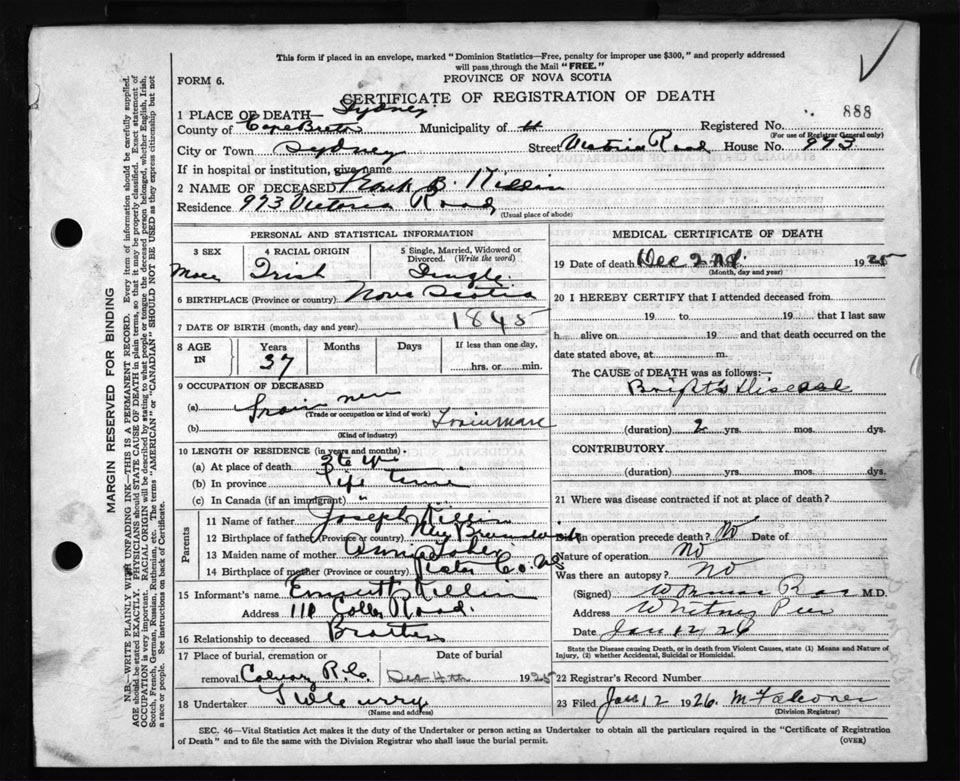 This form if placed in an envelope, marked "Dominion Statistics—Free, penalty for improper use $300," and properly addressed
will pass through the Mail "FREE."
FORM 6.
PROVINCE OF NOVA SCOTIA
CERTIFICATE OF REGISTRATION OF DEATH
888
1 PLACE OF DEATH— Sydney
County of Cape Breton Municipality of Registered No.
(For use of Registrar General only)
City or Town Sydney Street Victoria Road House No. 993
If in hospital or institution, give name
2 NAME OF DECEASED B. Killin
Residence 993 Victoria Road
(Usual place of abode)
PERSONAL AND STATISTICAL INFORMATION
3 SEX 4 RACIAL ORIGIN 5 Single, Married, Widowed or Divorced. (Write the word)
Male Irish Single.
6 BIRTHPLACE (Province or country) Nova Scotia
7 DATE OF BIRTH (month, day and year) 1845
8 AGE IN Years Months Days If less than one day,
37 hrs. or min.
9 OCCUPATION OF DECEASED
(a) Trainmen
(Trade or occupation or kind of work)
(b)
(Kind of industry)
10 LENGTH OF RESIDENCE (in years and months)
(a) At place of death
(b) In province Life time
(c) In Canada (if an immigrant) "
Parents
11 Name of father Joseph Killin
12 Birthplace of father (Province or country) New Brunswick
13 Maiden name of mother Annie
14 Birthplace of mother (Province or country) Pictou Co. NS
15 Informant's name Emmett Killin
Address 118 Road.
16 Relationship to deceased Brother
17 Place of burial, cremation or removal Date of burial
Calvary R.C. Dec 4th 1925
18 Undertaker
(Name and address)
MEDICAL CERTIFICATE OF DEATH
19 Date of death Dec 2nd. 1925
(Month, day and year)
20 I HEREBY CERTIFY that I attended deceased from
19 to 19 that I last saw
h alive on 19 and that death occurred on the
date stated above, at m.
The CAUSE of DEATH was as follows:—
Bright's Disease
(duration) 2 yrs. mos. dys.
CONTRIBUTORY
(duration) yrs. mos. dys.
21 Where was disease contracted if not at place of death?
Did an operation precede death? No Date of
Nature of operation No
Was there an autopsy? No
(Signed) M.D.
Address Whitney Pier
Date Jan 12/26
State the Disease causing Death, or in death from Violent Causes, state (1) Means and Nature of
Injury, (2) whether Accidental, Suicidal or Homicidal.
22 Registrar's Record Number
23 Filed Jan 12 1926. M Falconer
(Division Registrar)
SEC. 46—Vital Statistics Act makes it the duty of the Undertaker or person acting as Undertaker to obtain all the particulars required in the "Certificate of Registration
of Death" and to file the same with the Division Registrar who shall issue the burial permit.
(OVER)
MARGIN RESERVED FOR BINDING
N.B.—WRITE PLAINLY WITH UNFADING INK—THIS IS A PERMANENT RECORD. Every item of information should be carefully supplied.
AGE should be stated EXACTLY. PHYSICIANS should STATE CAUSE OF DEATH in plain terms, so that it may be properly classified. Exact statement of
OCCUPATION is very important. RACIAL ORIGIN will be described by stating to what people or tongue the deceased person belonged, whether English, Irish,
Scotch, French, German, Russian, Ruthenian, etc. The terms "AMERICAN" or "CANADIAN" SHOULD NOT BE USED as they express citizenship but not
a race or people. See instructions on back of Certificate.